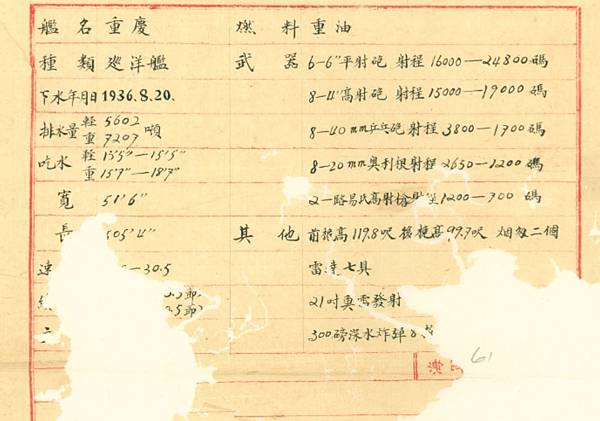 艦名重慶 燃料重油
種類巡洋艦 武器 6-6"平射砲 射程 16000—24800碼
下水年月日 1936.8.20. 8-4"高射砲 射程 15000—19000碼
排水量 輕 5602 重 7207 噸 8-40mm乒乓砲 射程 3800—1700碼
吃水 輕 13'5"—15'5" 重 15'7"—18'7" 8-20mm奧利根射程 2650—1200碼
寬 51'6" 2-路易氏高射槍射程 1200—700碼
長 505'4" 其他 前桅高119.8呎 後桅高99.7呎 烟匆二個
-30.5 雷達七具
21吋魚雷發射
300磅深水炸彈8
61